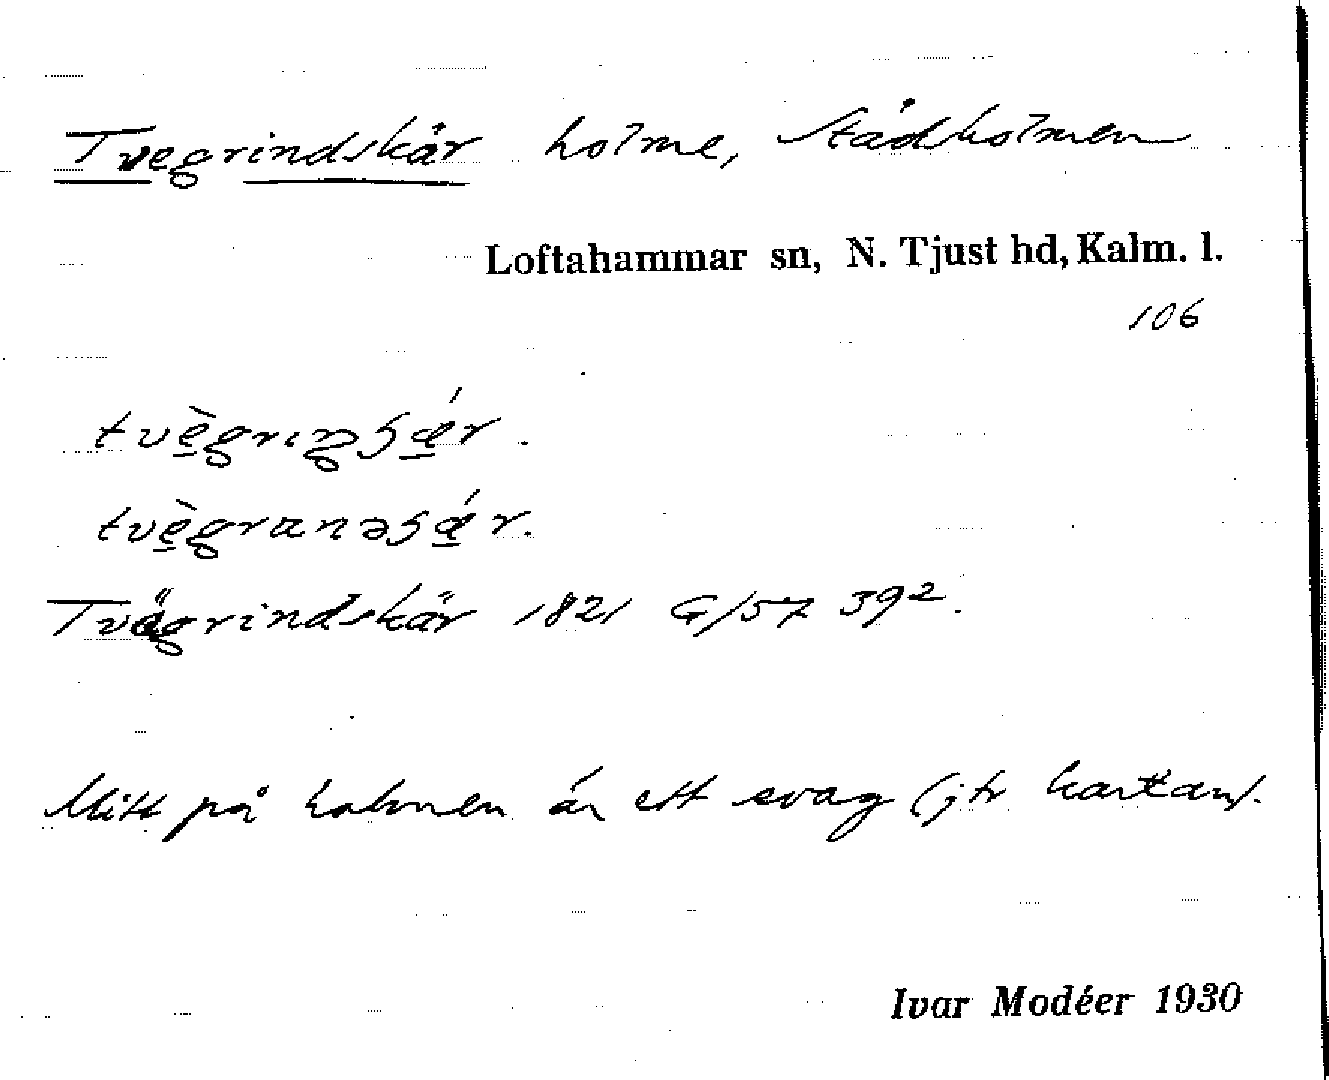 Tvegrindskär holme, Städholmen
Loftahammar sn, N. Tjust hd, Kalm. l.
106
Tvägrindskär 1821 G/57 39².
Mitt på holmen är ett svag (jfr kartan).
Ivar Modéer 1930